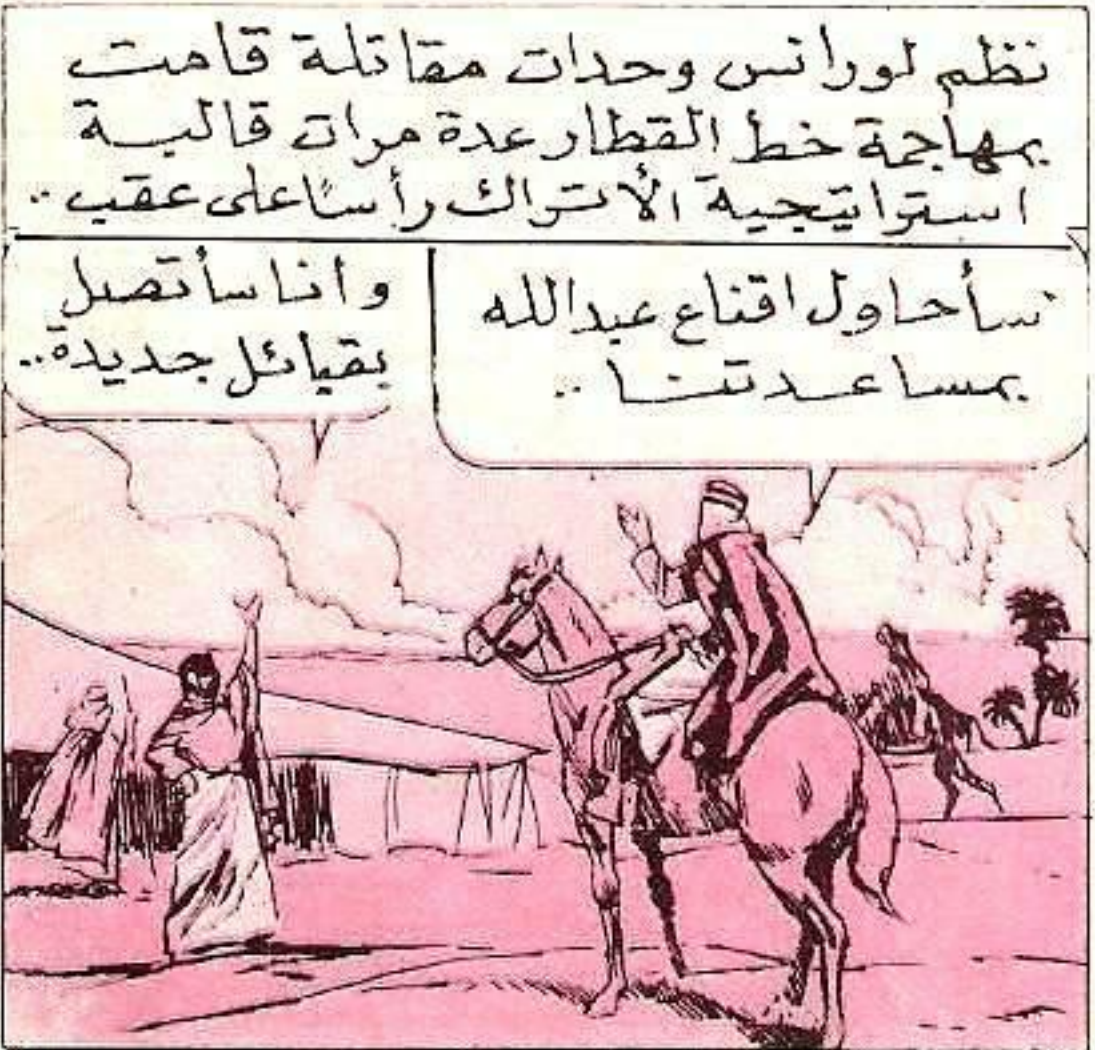 نظم لورانس وحدات مقاتلة قامت
بمهاجمة خط القطار عدة مرات قالبة
استراتيجية الأتراك رأسًا على عقب..
سأحاول اقناع عبدالله
بمساعدتنا..
وأنا سأتصل
بقبائل جديدة..